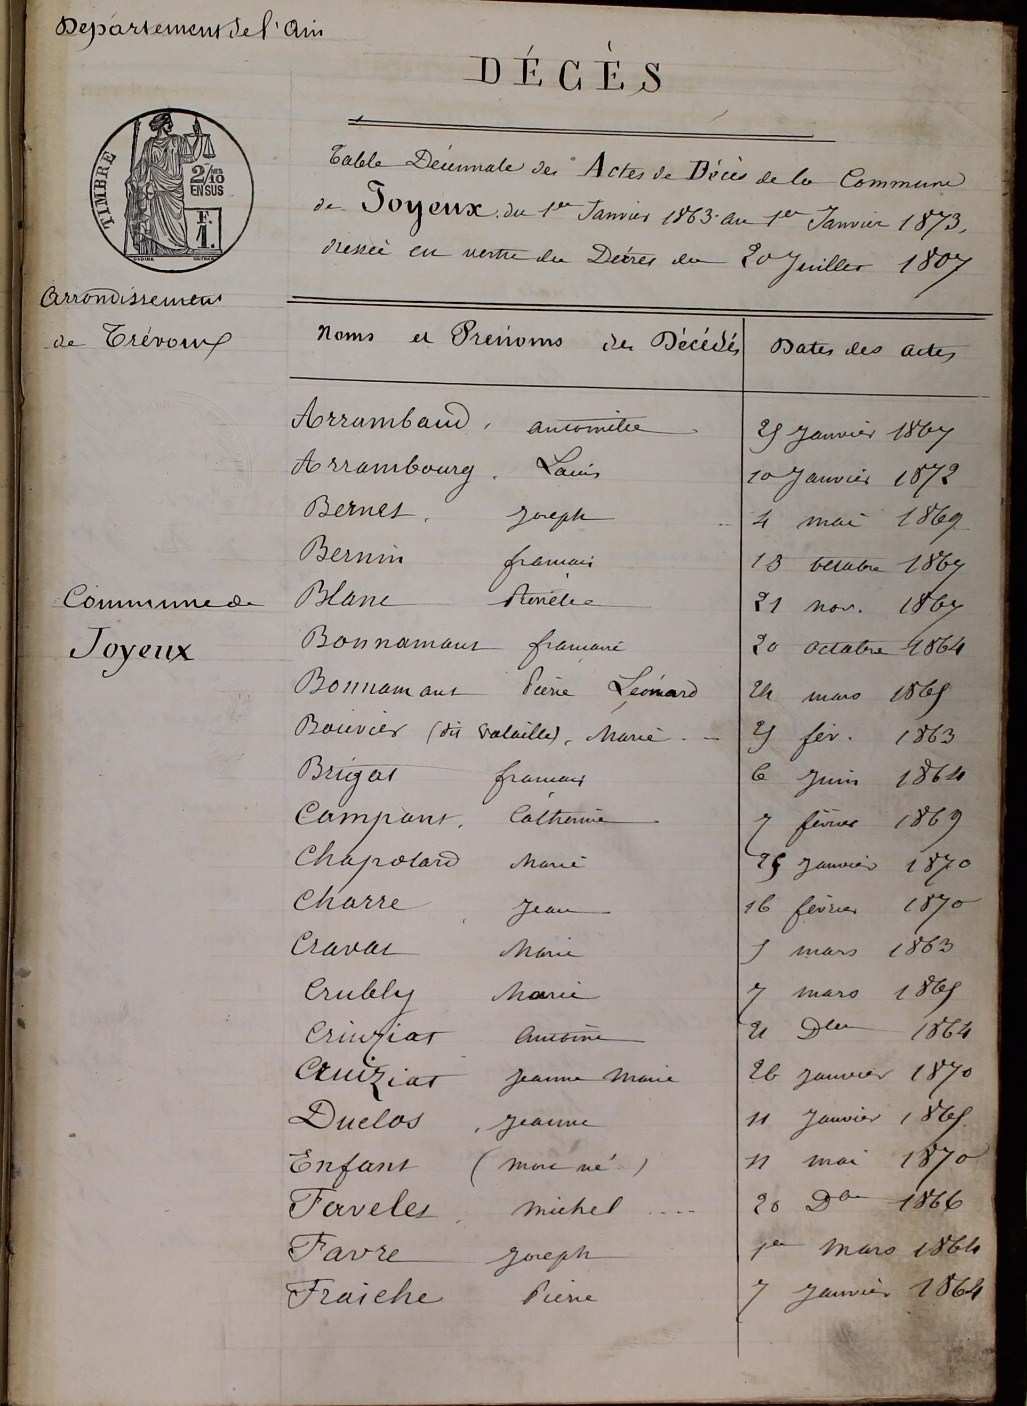 Département de l'Ain
DÉCÈS
TIMBRE
2/10
EN SUS
F.
1.
Table Décennale des Actes de Décès de la Commune
de Joyeux, du 1er Janvier 1863 au 1er Janvier 1873,
dressée en vertu du Décret du 20 Juillet 1807
Arrondissement
de Trévoux
Noms et Prénoms des Décédés Dates des actes
Arrambaud, 25 Janvier 1867
Arrambourg, Louis 10 Janvier 1872
Bernet, Joseph 4 mai 1869
Bernin françois 13 octobre 1867
Commune de
Joyeux
Blanc 21 nov. 1867
Bonnamant 20 octobre 1864
Bonnamant Pierre Léonard 24 mars 1865
Bouvier (dit Valaille), Marie 5 fév. 1863
Brigat françois 6 Juin 1864
Campant, Catherine 7 février 1869
Chapolard Marie 25 Janvier 1870
Charre Jean 16 février 1870
Cravat Marie 5 mars 1863
Crubly Marie 7 mars 1865
Cruiziat Antoine 21 Dbre 1864
Cruiziat Jeanne Marie 26 Janvier 1870
Duclos, Jeanne 11 Janvier 1865
Enfant (mort né) 11 mai 1870
Favelet, Michel 20 Dbre 1866
Favre Joseph 1er Mars 1864
Fraiche Pierre 7 Janvier 1864